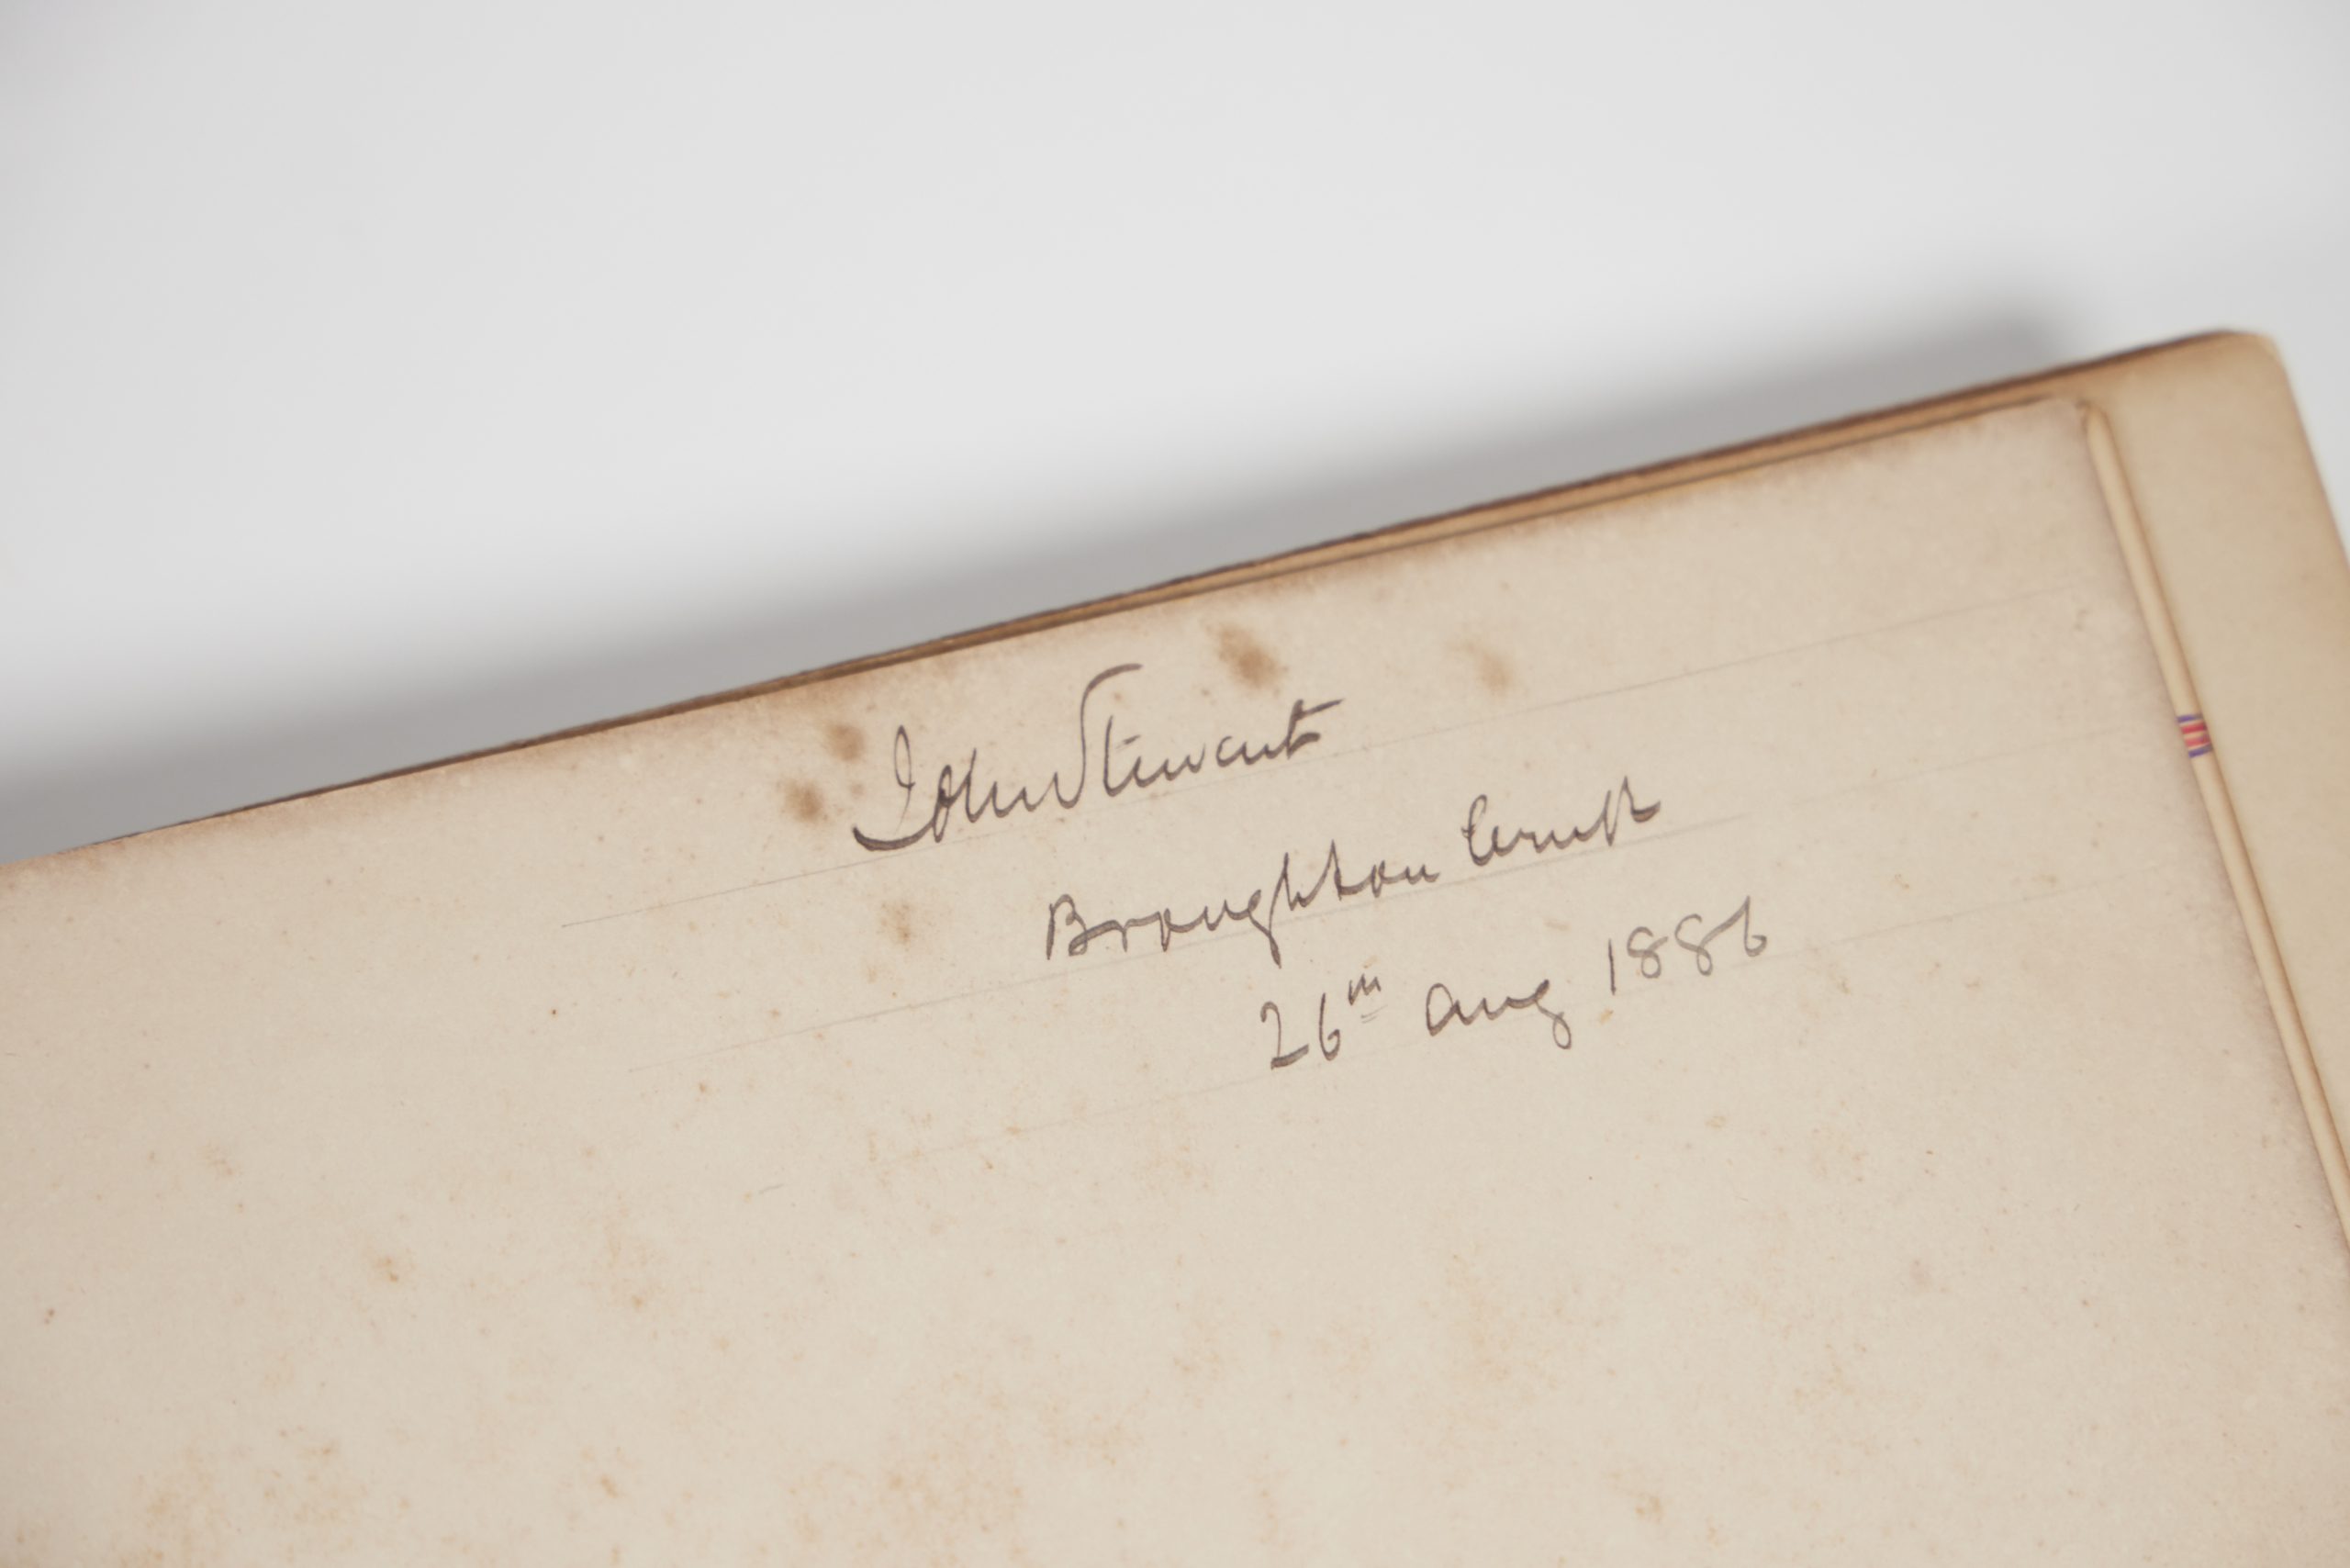 John Stewart
Broughton
26th Aug 1886